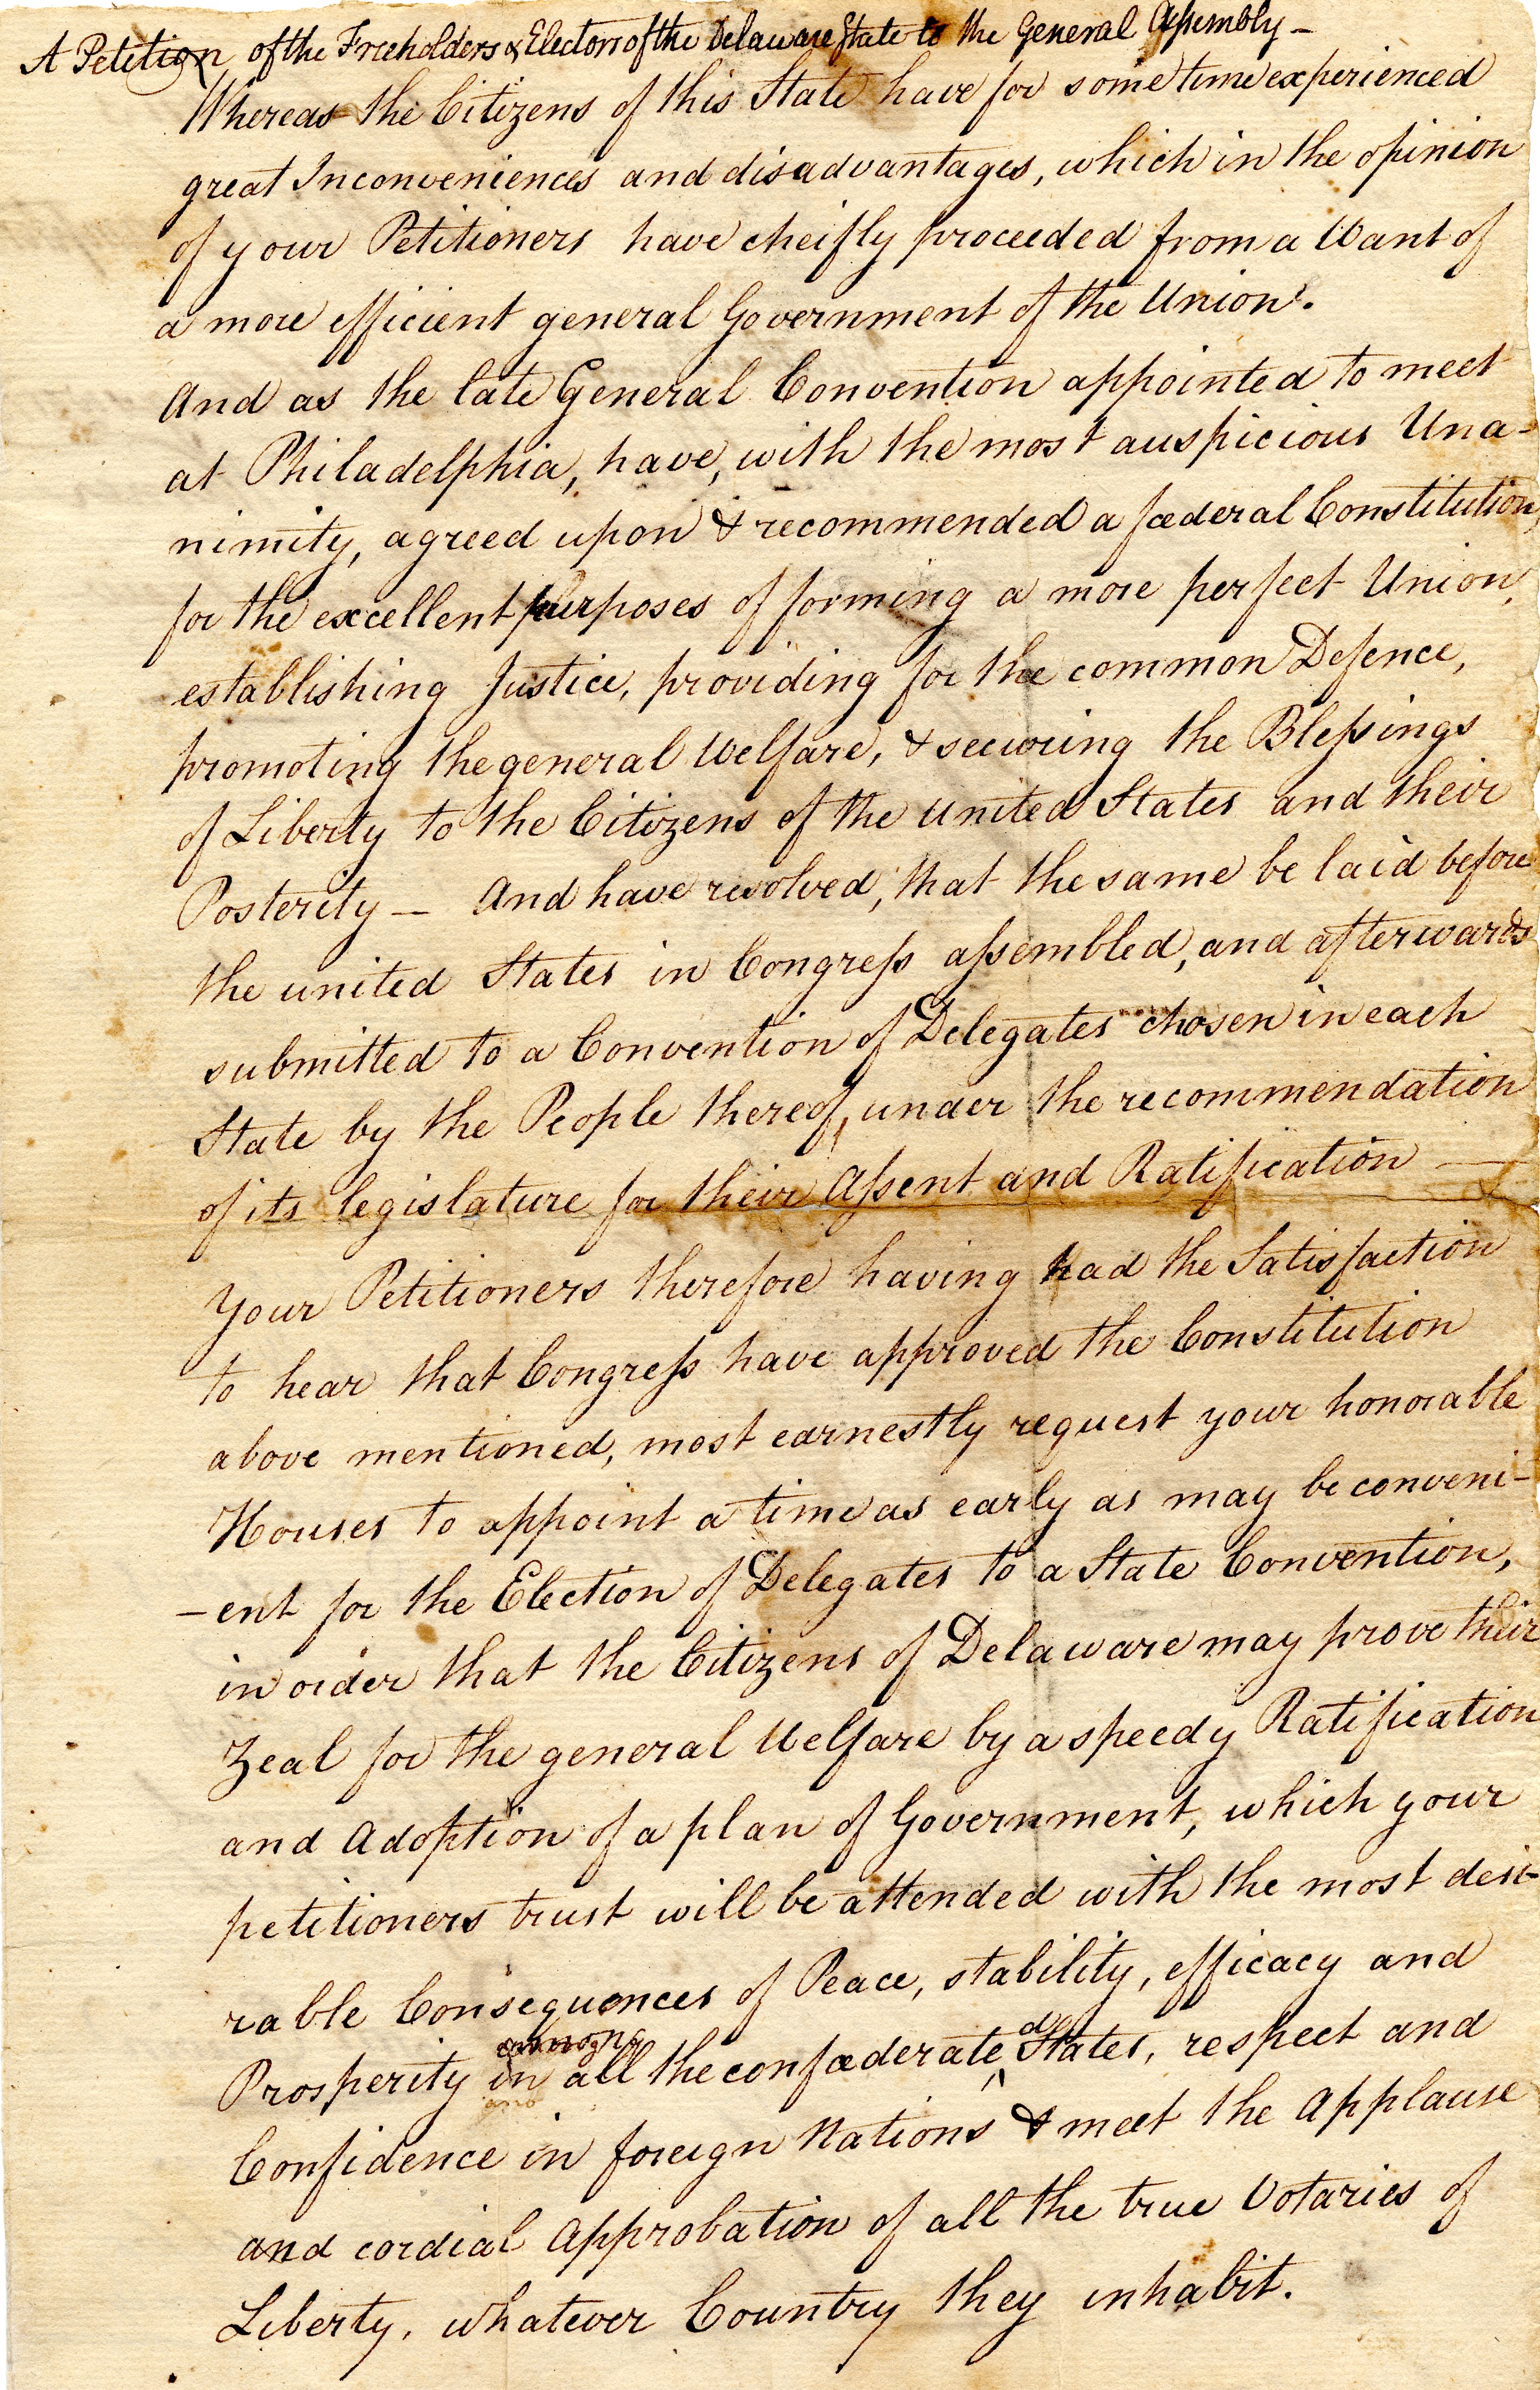 A Petition of the Freeholders & Electors of the Delaware State to the General Assembly —
Whereas the Citizens of this State have for some time experienced
great Inconveniences and disadvantages, which in the opinion
of your Petitioners have cheifly proceeded from a Want of
a more efficient general Government of the Union.
And as the late General Convention appointed to meet
at Philadelphia, have, with the most auspicious Una-
nimity, agreed upon & recommended a fœderal Constitution,
for the excellent purposes of forming a more perfect Union,
establishing Justice, providing for the common Defence,
promoting the general Welfare, & securing the Blessings
of Liberty to the Citizens of the united States and their
Posterity — And have resolved, that the same be laid before
the united States in Congress assembled, and afterwards
submitted to a Convention of Delegates chosen in each
State by the People thereof, under the recommendation
of its legislature for their Assent and Ratification —
Your Petitioners therefore having had the Satisfaction
to hear that Congress have approved the Constitution
above mentioned, most earnestly request your honorable
Houses to appoint a time as early as may be conveni-
-ent for the Election of Delegates to a State Convention,
in order that the Citizens of Delaware may prove their
Zeal for the general Welfare by a speedy Ratification
and Adoption of a plan of Government, which your
petitioners trust will be attended with the most desi-
rable Consequences of Peace, stability, efficacy and
among
Prosperity in all the confœderated States, respect and
Confidence in foreign Nations & meet the Applause
and cordial Approbation of all the true Votaries of
Liberty, whatever Country they inhabit.